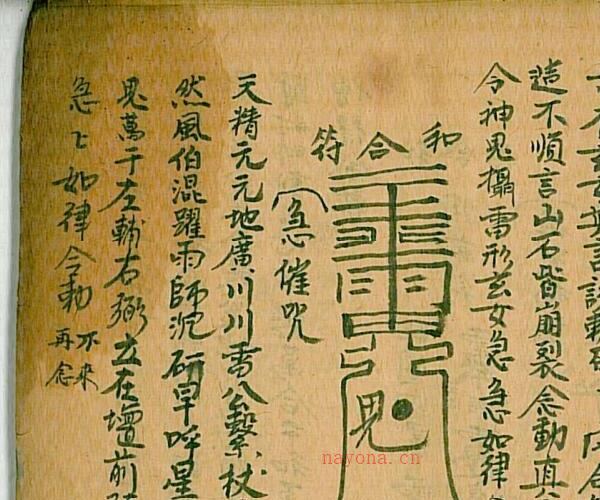 造不順言山石皆崩裂念動真
令神鬼攝雷形玄女急急如律
和合符
鬼
(急催咒
天精元元地廣川川雷公繫杖
然風伯混躍雨師沱研旱哞星
鬼萬千左輔右弼立在壇前
急〻如律令勅 不來
再念
nayona.cn